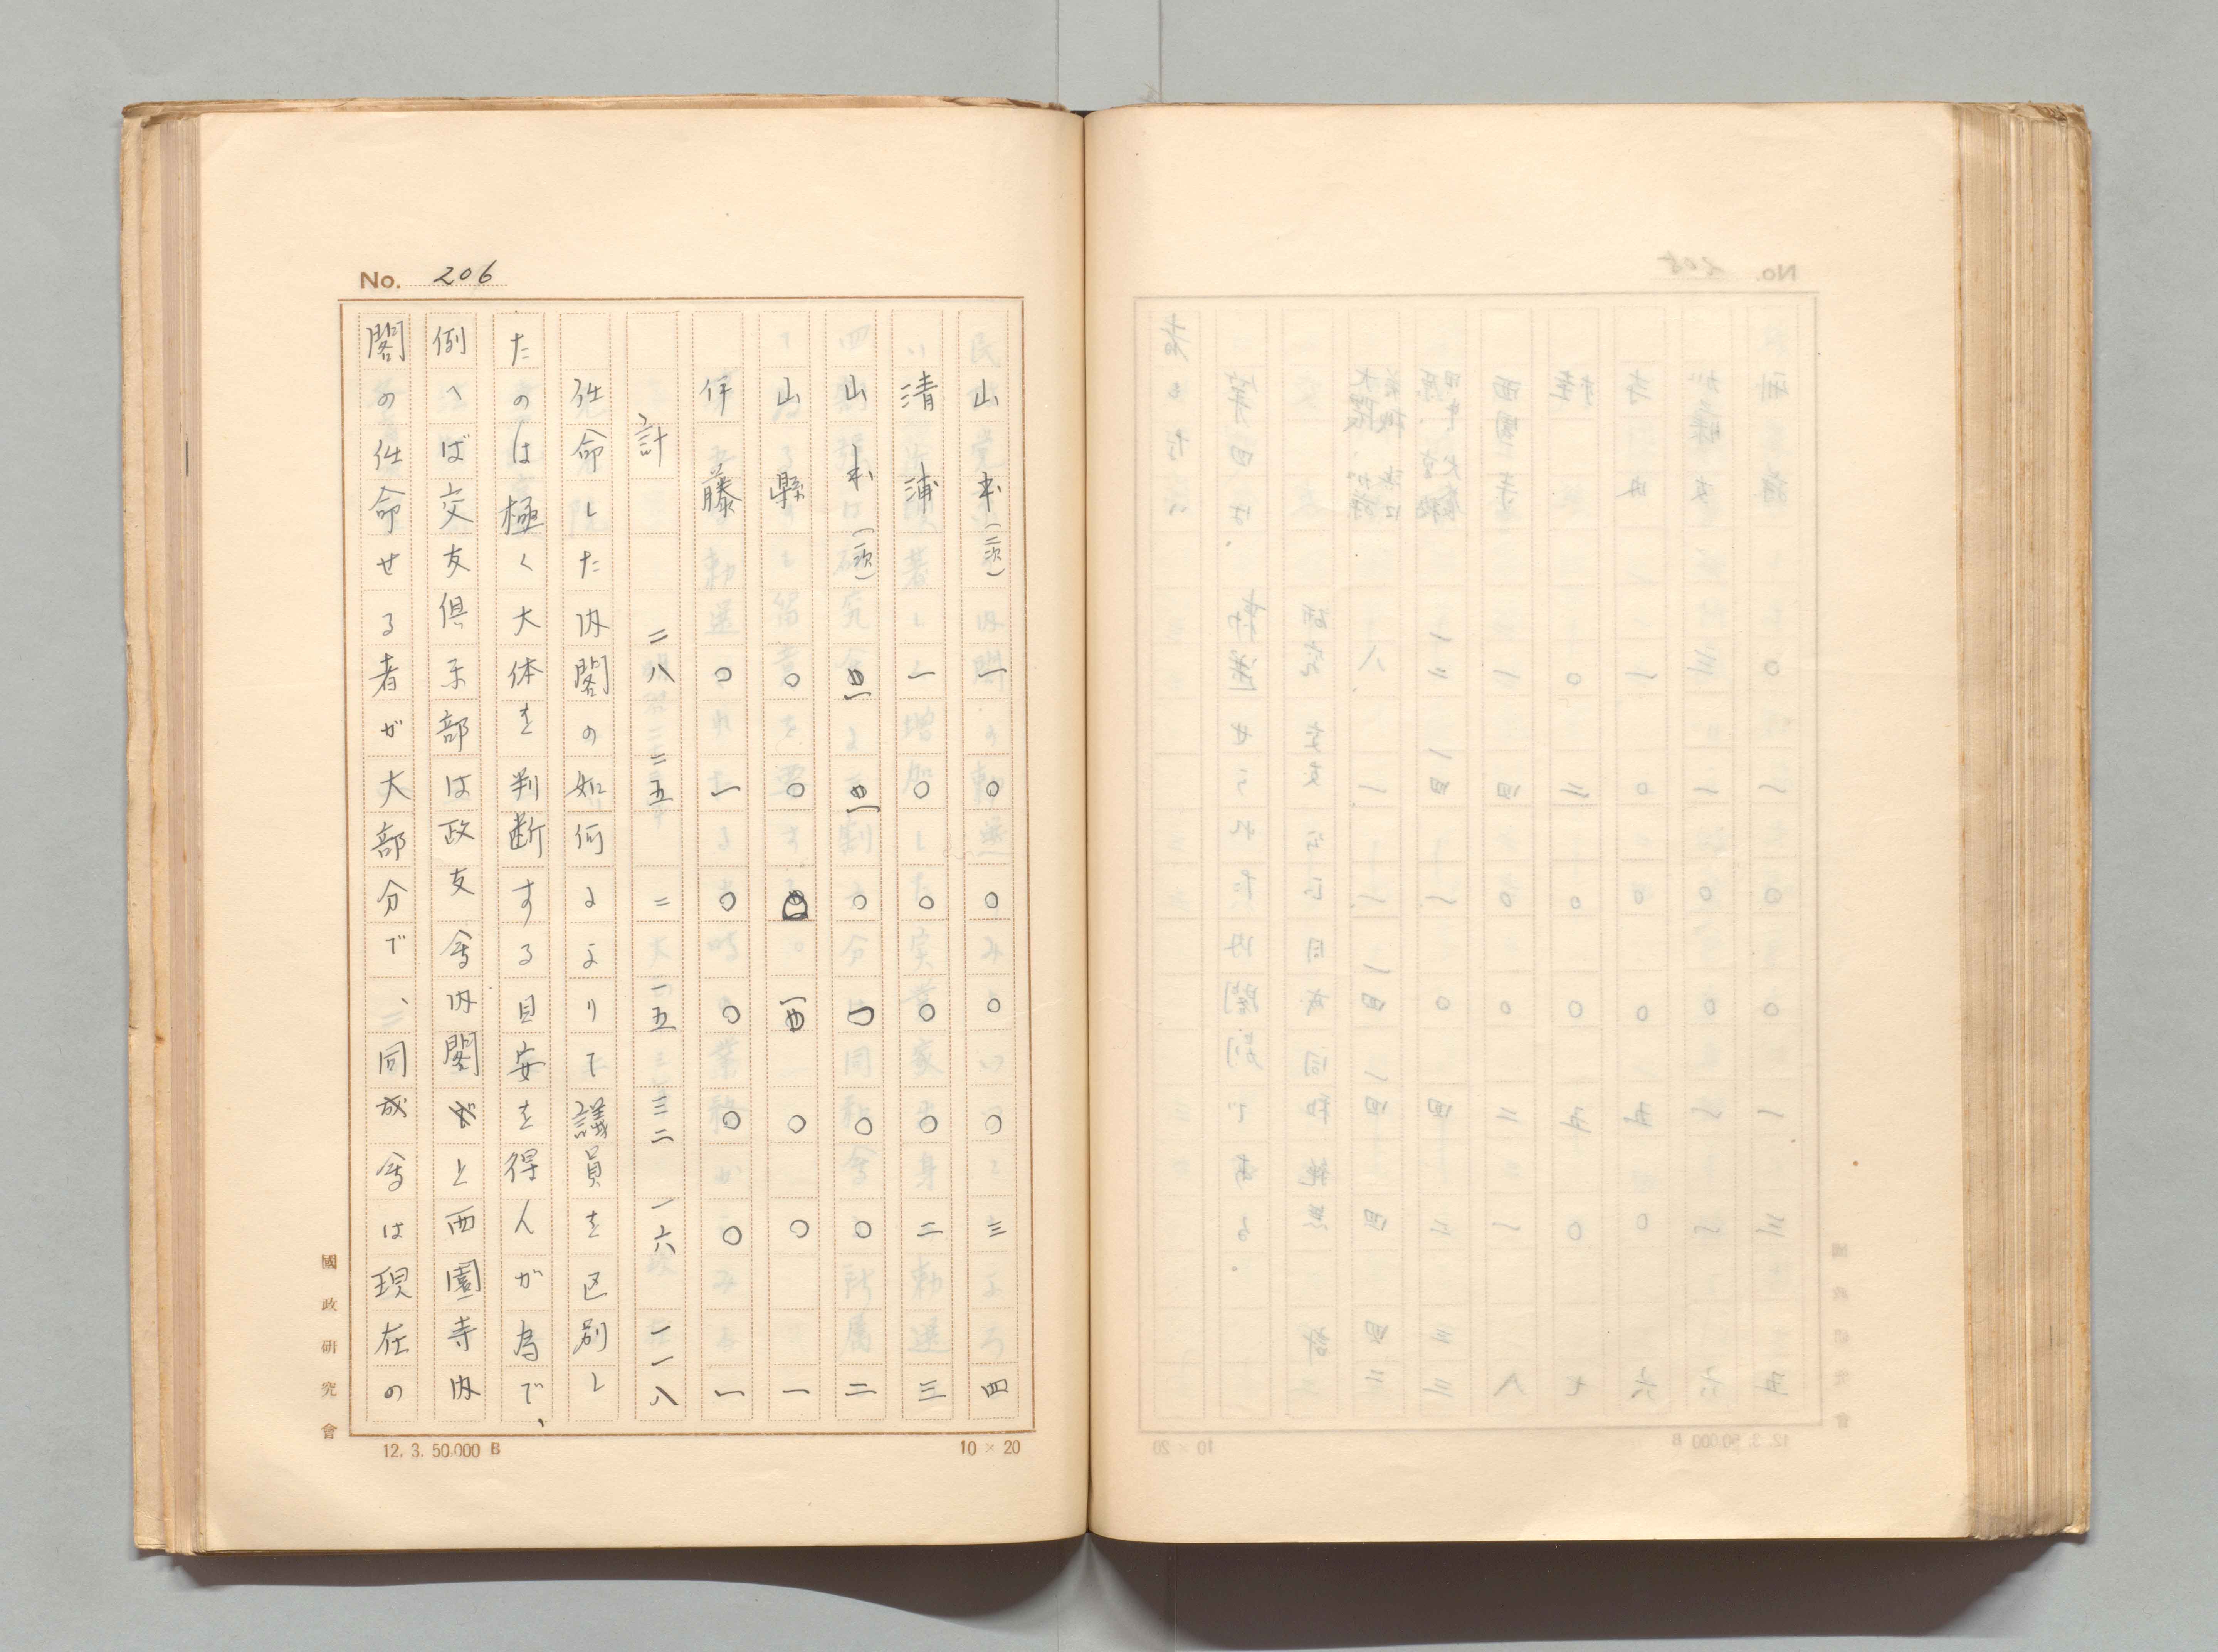 No. 206
山本(二次) 一 〇 〇 〇 〇 三 四
清浦 一 〇 〇 〇 〇 二 三
山本(一次) 一 一 〇 〇 〇 〇 二
山縣 〇 〇 〇 一 〇 〇 一
伊藤 〇 一 〇 〇 〇 〇 一
計 二八 二五 二 一五 三二 一六 一一八
任命した内閣の如何によりて議員を区別し
たのは極く大体を判断する目安を得んが為で、
例へば交友倶楽部は政友会内閣と西園寺内
閣の任命せる者が大部分で、同成会は現在の
國政研究會
12. 3. 50.000 B
10 × 20